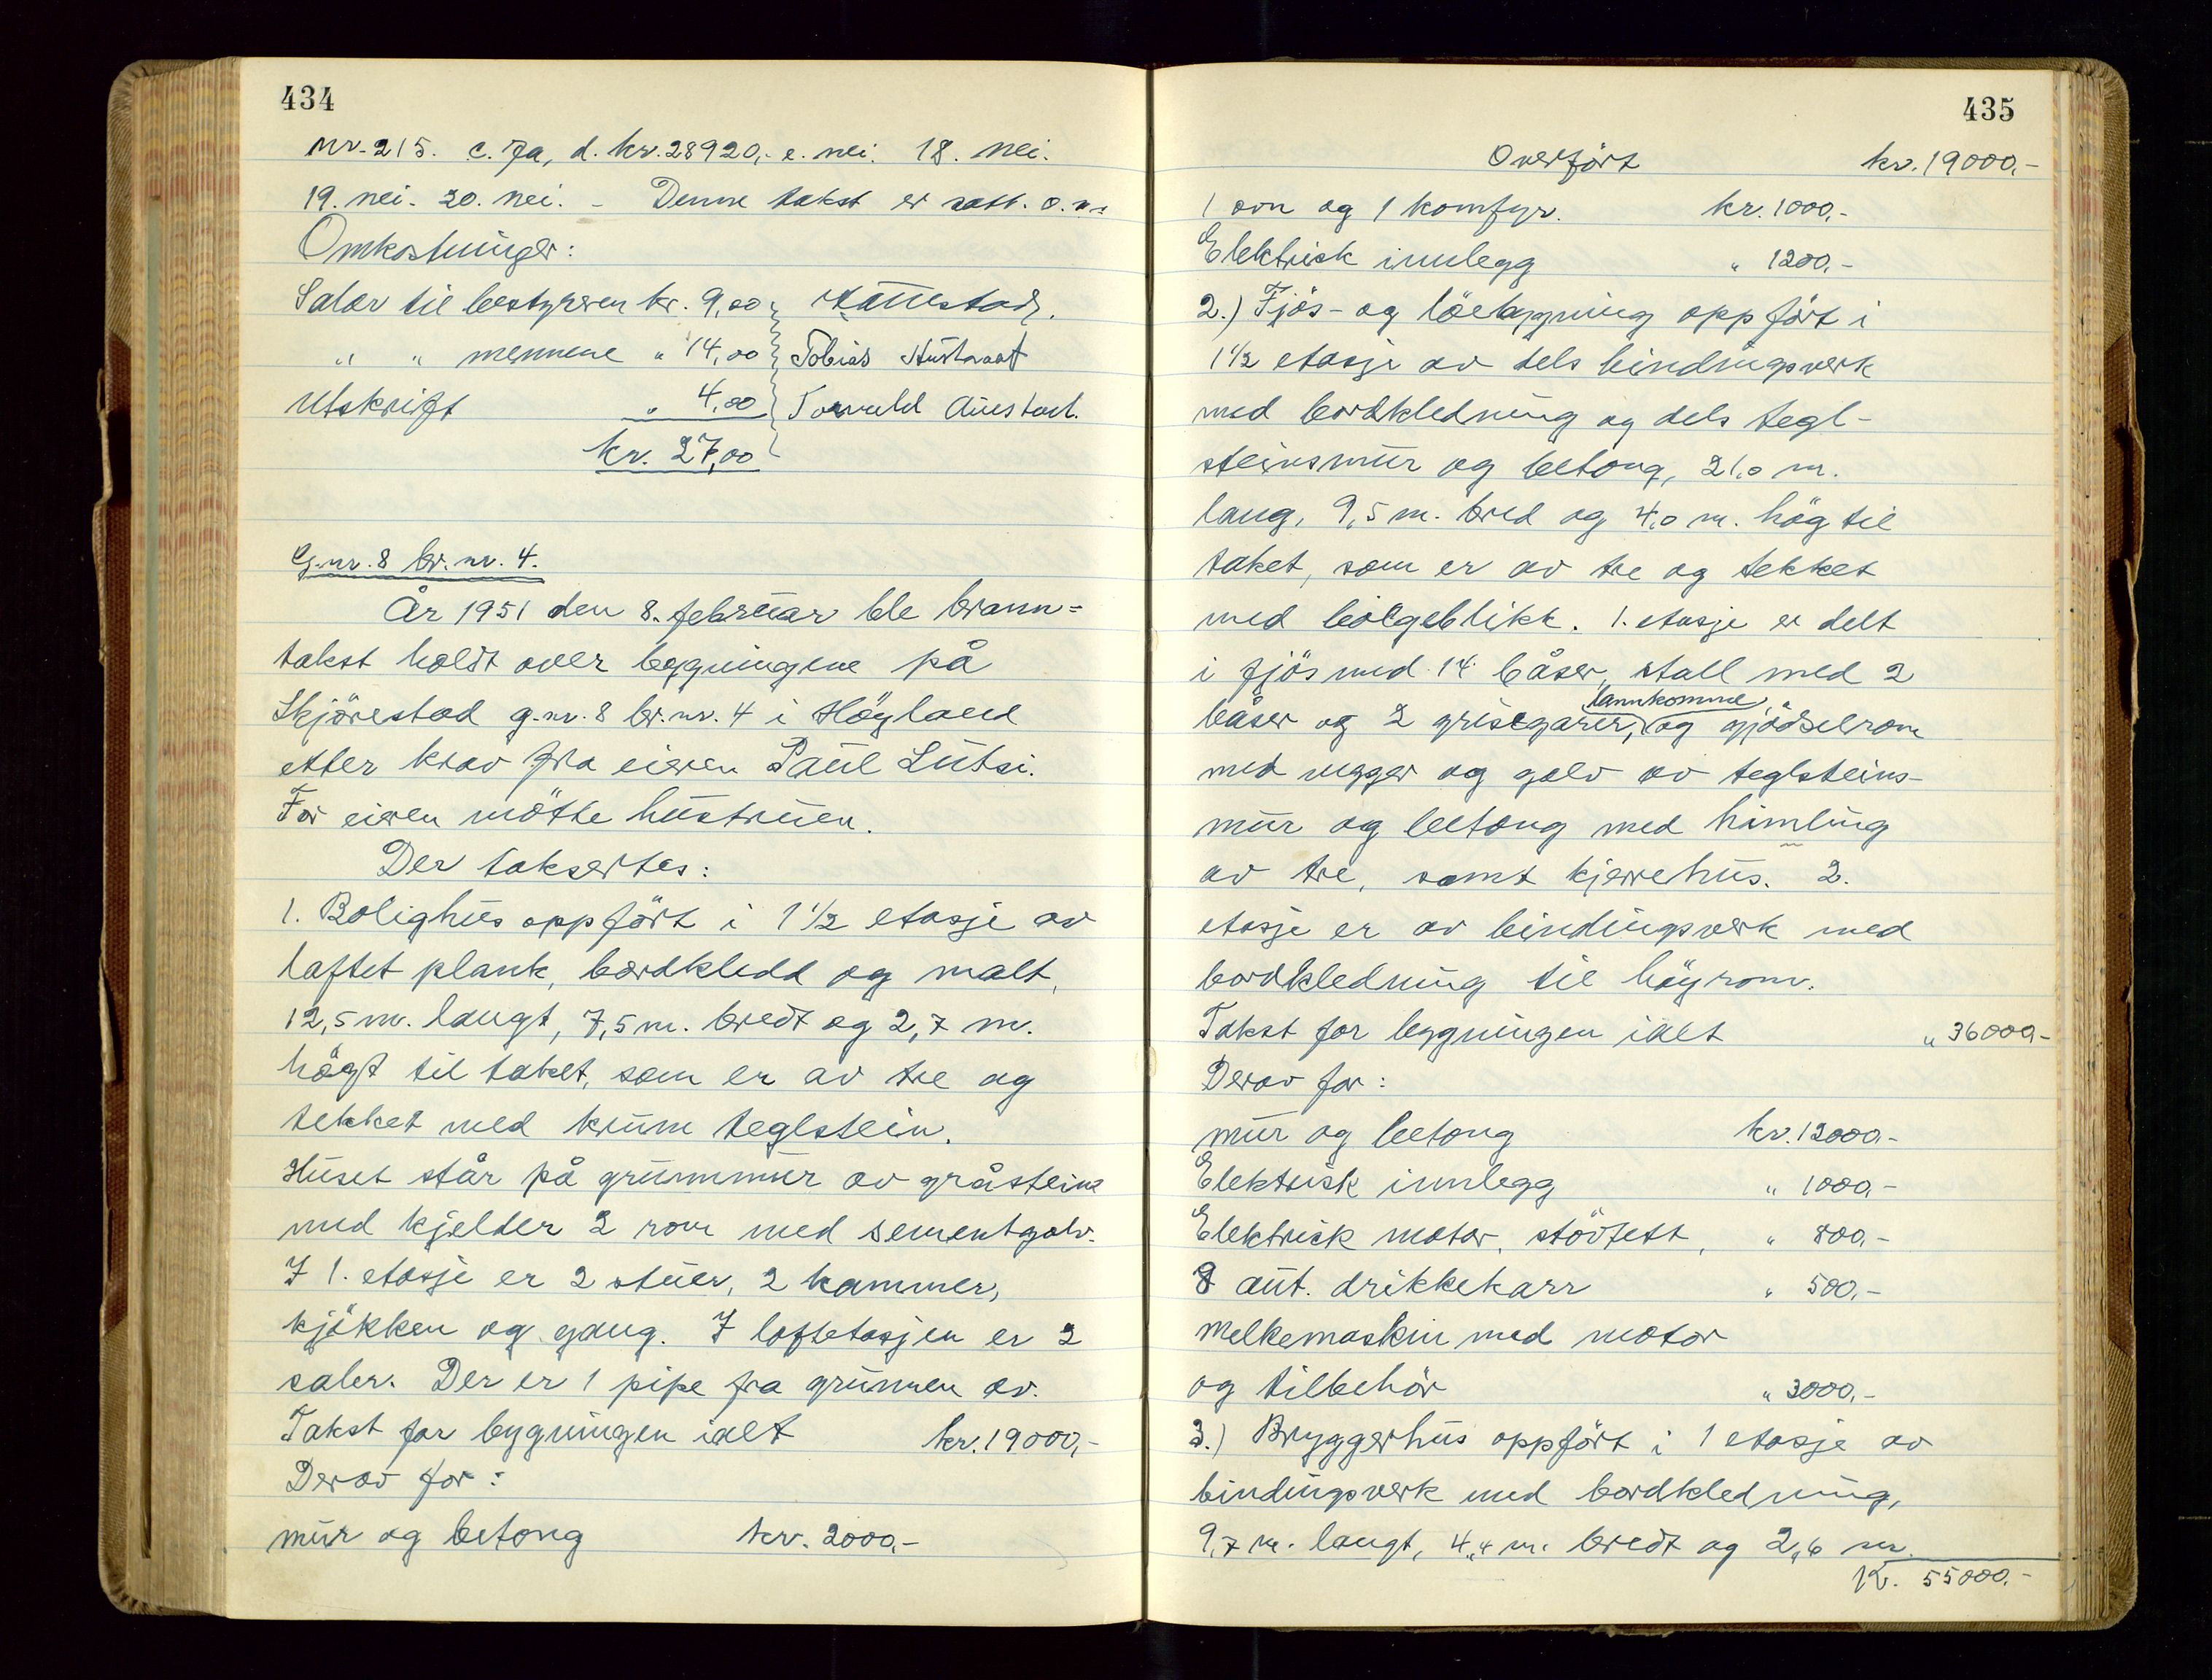 434
nr. 215. c. Ja, d. kr. 28920,- e. nei. 18. nei.
19. nei. 20. nei. - Denne takst er satt. o.s.
Omkostninger:
Salær til bestyreren kr. 9,00
" " mennene " 14,00 Tobias
Utskrift " 4,00 Torvald Auestad.
kr. 27,00
G.nr. 8 br. nr. 4.
År 1951 den 8. februar ble brann=
takst holdt over bygningene på
Skjörestad g.nr. 8 br.nr. 4 i Högland
etter krav fra eieren Paul Lutsi.
For eieren mötte hustruen.
Der taksertes:
1. Bolighus oppfört i 1 1/2 etasje av
laftet plank, bordkledd og malt,
12,5 m. langt, 7,5 m. bredt og 2,7 m.
högt til taket, som er av tre og
tekket med krum teglstein.
Huset står på grunnmur av gråstein
med kjelder 2 rom med sementgolv.
I 1. etasje er 2 stuer, 2 kammer,
kjökken og gang. I loftetasjen er 2
saler. Der er 1 pipe fra grunnen av.
Takst for bygningen ialt kr. 19000,-
Derav for:
mur og betong kr. 2000,-
435
Overfört kr. 19000,-
1 ovn og 1 komfyr. kr. 1000,-
Elektrisk innlegg " 1200,-
2.) Fjös- og löebygning oppfört i
1 1/2 etasje av dels bindingsverk
med bordkledning og dels tegl-
steinsmur og betong, 21,0 m.
lang, 9,5 m. bred og 4,0 m. hög til
taket, som er av tre og tekket
med bölgeblikk. 1. etasje er delt
i fjös med 14 båser, stall med 2
lannkomme,
båser og 2 grisegarer, og gjödselrom
med vegger og golv av teglsteins-
mur og betong med himling
av tre, samt kjerrehus. 2.
etasje er av bindingsverk med
bordkledning til höyrom.
Takst for bygningen ialt " 36000,-
Derav for:
mur og betong kr. 12000,-
Elektrisk innlegg " 1000,-
Elektrisk motor, stövtett, " 800,-
8 aut. drikkekarr " 500,-
Melkemaskin med motor
og tilbehör " 3000,-
3.) Bryggerhus oppfört i 1 etasje av
bindingsverk med bordkledning,
9,7 m. langt, 4,4 m. bredt og 2,6 m.
Kr. 55000,-